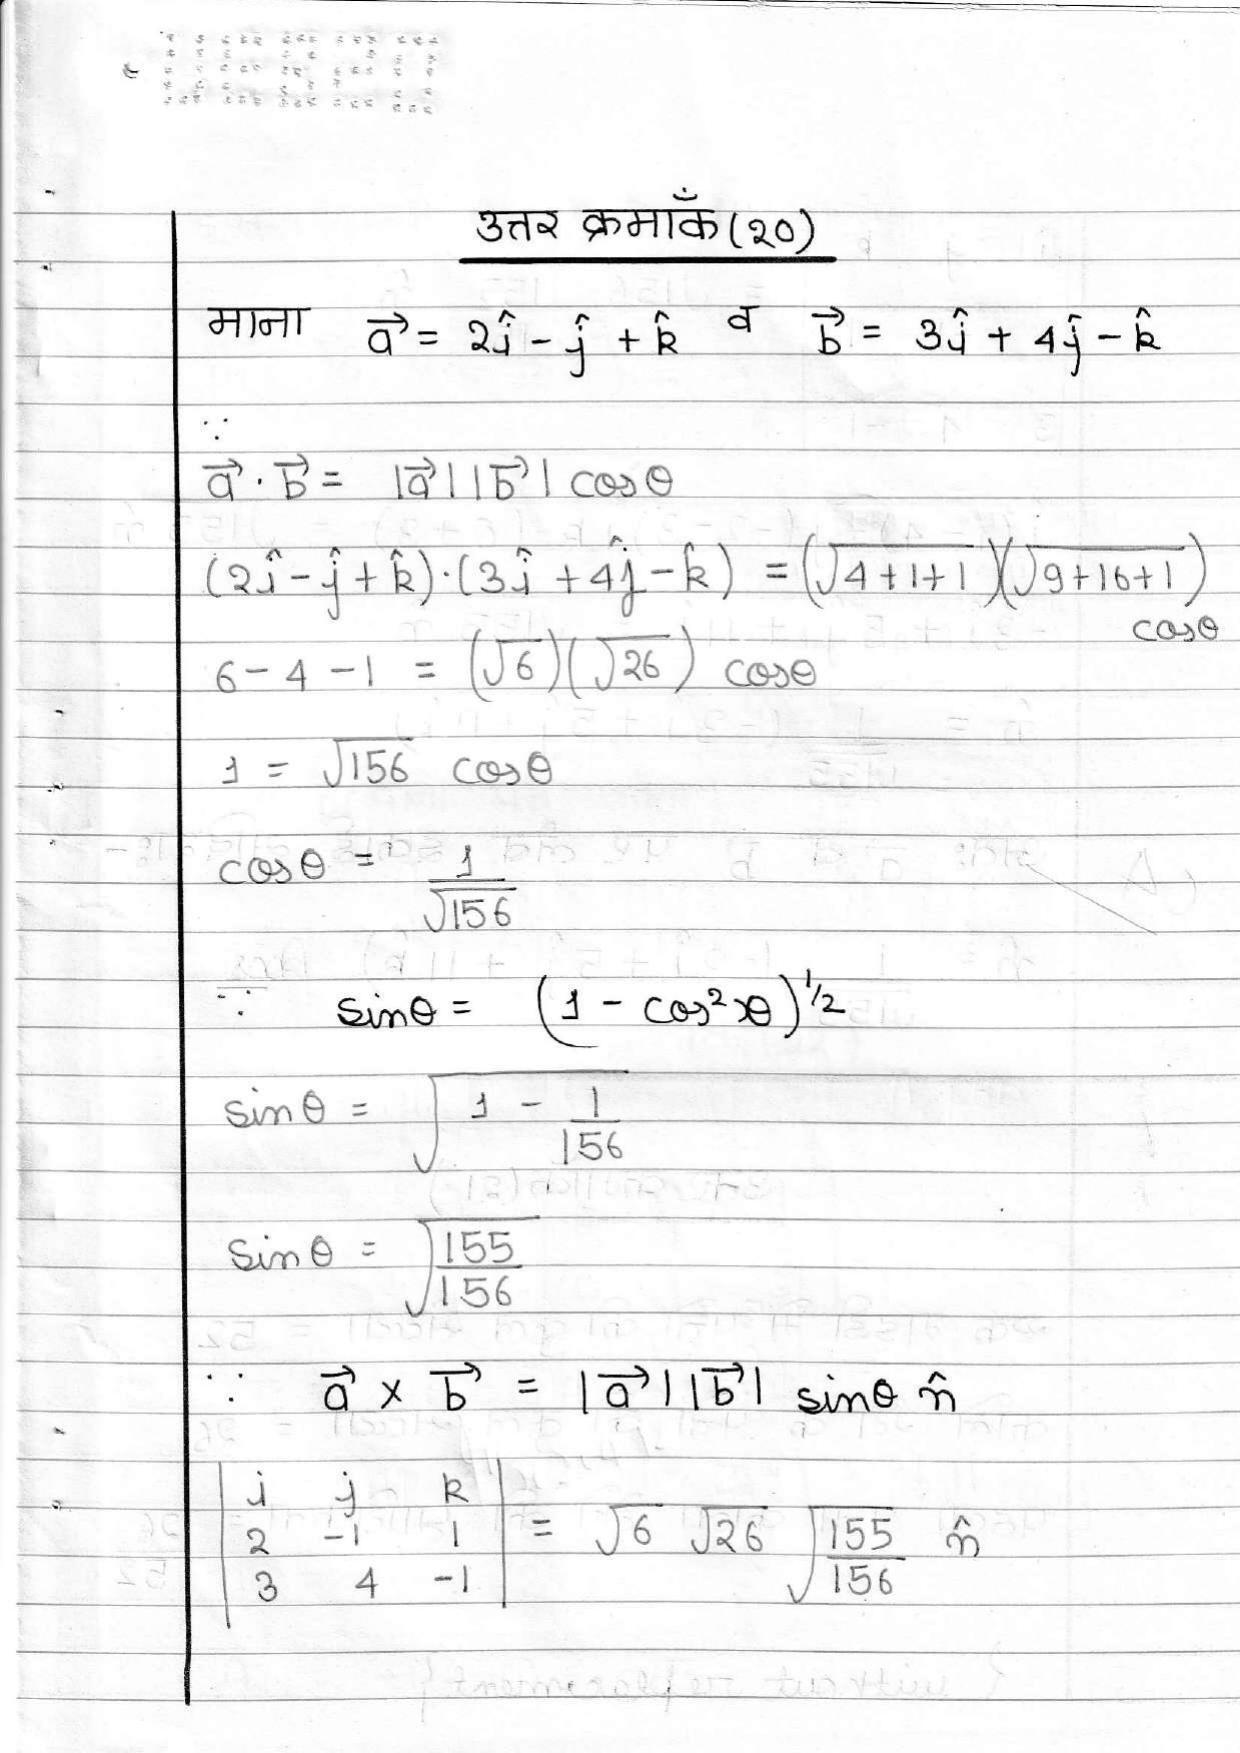 उत्तर क्रमाँक (२०)
माना a⃗ = 2î - ĵ + k̂ व b⃗ = 3î + 4ĵ - k̂
∵
a⃗ · b⃗ = |a⃗| |b⃗| cosθ
(2î - ĵ + k̂)·(3î + 4ĵ - k̂) = (√4+1+1)(√9+16+1)
cosθ
6 - 4 - 1 = (√6)(√26) cosθ
1 = √156 cosθ
cosθ = 1/√156
∵ sinθ = (1 - cos²θ)^1/2
sinθ = √(1 - 1/156)
sinθ = √(155/156)
∵ a⃗ × b⃗ = |a⃗| |b⃗| sinθ n̂
| i j k |
| 2 -1 1 | = √6 √26 √(155/156) n̂
| 3 4 -1 |